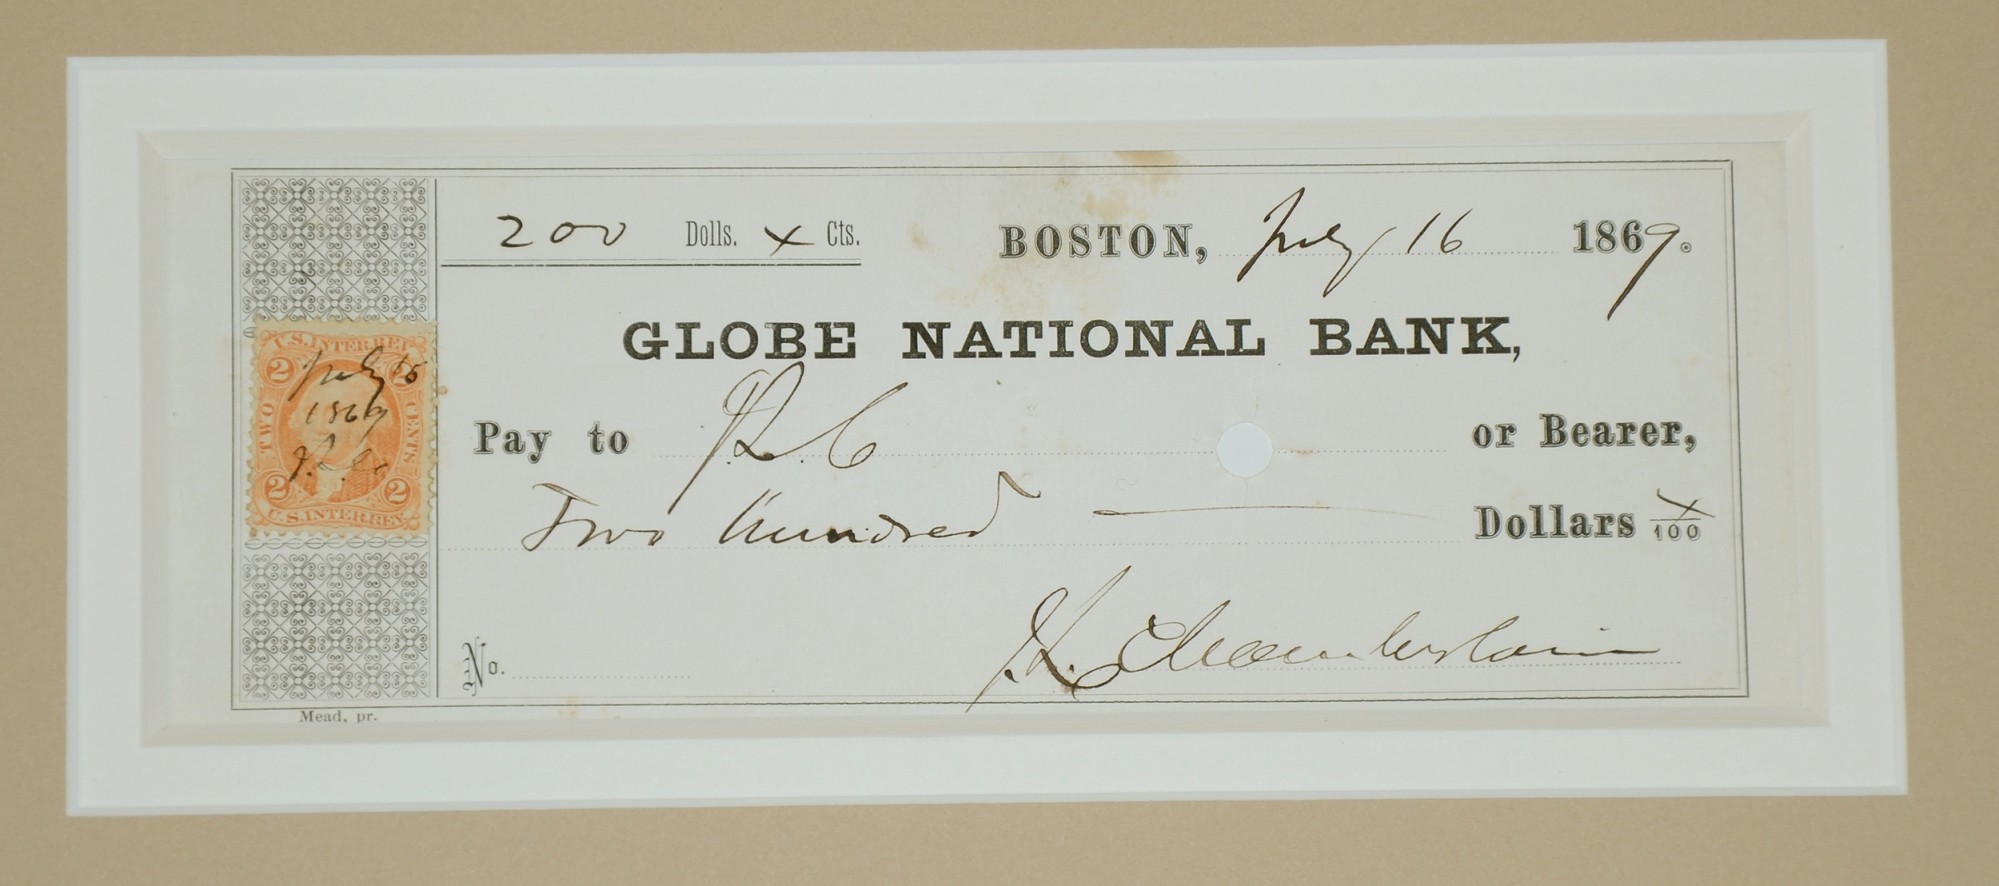 200 Dolls. x Cts.
BOSTON, July 16 1869.
GLOBE NATIONAL BANK,
Pay to or Bearer,
Two Hundred — Dollars x/100
J.L. Chamberlain
No.
Mead, pr.
U.S. INTER. REV.
2 2
TWO CENTS
July
1869
2 2
U.S. INTER. REV.